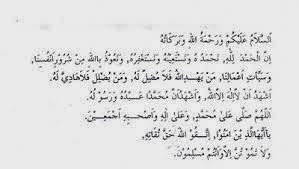 اَلسَّلَامُ عَلَيْكُمْ وَرَحْمَةُ اللهِ وَبَرَكَاتُهُ
اِنَّ الْحَمْدَ لِلّٰهِ، نَحْمَدُهُ وَنَسْتَعِيْنُهُ وَنَسْتَغْفِرُهُ، وَنَعُوْذُ بِاللهِ مِنْ شُرُوْرِ اَنْفُسِنَا،
وَسَيِّئَاتِ اَعْمَالِنَا، مَنْ يَهْدِ اللهُ فَلَا مُضِلَّ لَهُ، وَمَنْ يُضْلِلْ فَلَا هَادِيَ لَهُ.
اَشْهَدُ اَنْ لَا اِلٰهَ اِلَّا اللهُ، وَاَشْهَدُ اَنَّ مُحَمَّدًا عَبْدُهُ وَرَسُوْلُهُ.
اَللّٰهُمَّ صَلِّى عَلَى مُحَمَّدٍ، وَعَلَى اٰلِهِ وَاَصْحَبِهِ اَجْمَعِيْنَ.
يَاَيُّهَا الَّذِيْنَ اٰمَنُوْا، اِتَّقُوْ اللهَ حَقَّ تُقَاتِهِ،
وَلَا تَمُوْ تُنَّ اِلَّا وَاَنْتُمْ مُسْلِمُوْنَ.